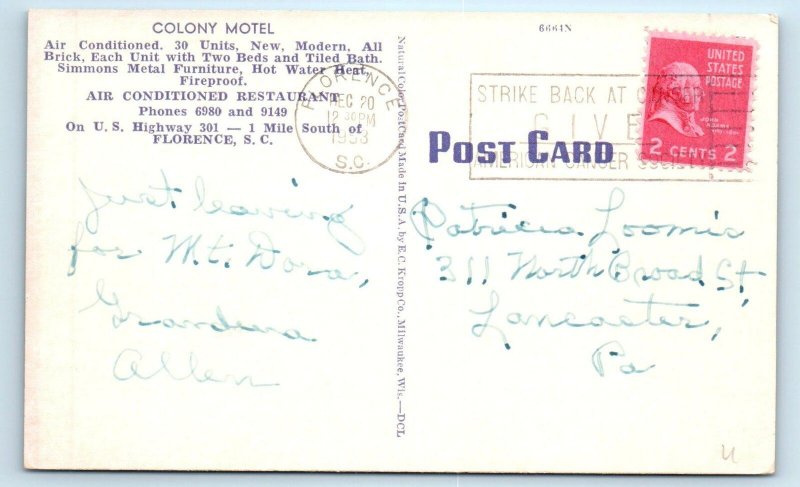 COLONY MOTEL
Air Conditioned. 30 Units, New, Modern, All
Brick, Each Unit with Two Beds and Tiled Bath.
Simmons Metal Furniture, Hot Water Heat,
Fireproof.
AIR CONDITIONED RESTAURANT
Phones 6980 and 9149
On U. S. Highway 301 — 1 Mile South of
FLORENCE, S. C.
Just leaving
for Mt. Dora,
Allen
Natural Color Post Card Made in U.S.A. by E. C. Kropp Co., Milwaukee, Wis.—DCL
6664N
FLORENCE
DEC 20
12 30 PM
1953
S.C.
STRIKE BACK AT CANCER
GIVE
AMERICAN CANCER SOCIETY
UNITED
STATES
POSTAGE
JOHN
ADAMS
2 CENTS 2
POST CARD
Patricia Loomis
311 North Broad St
Lancaster,
Pa